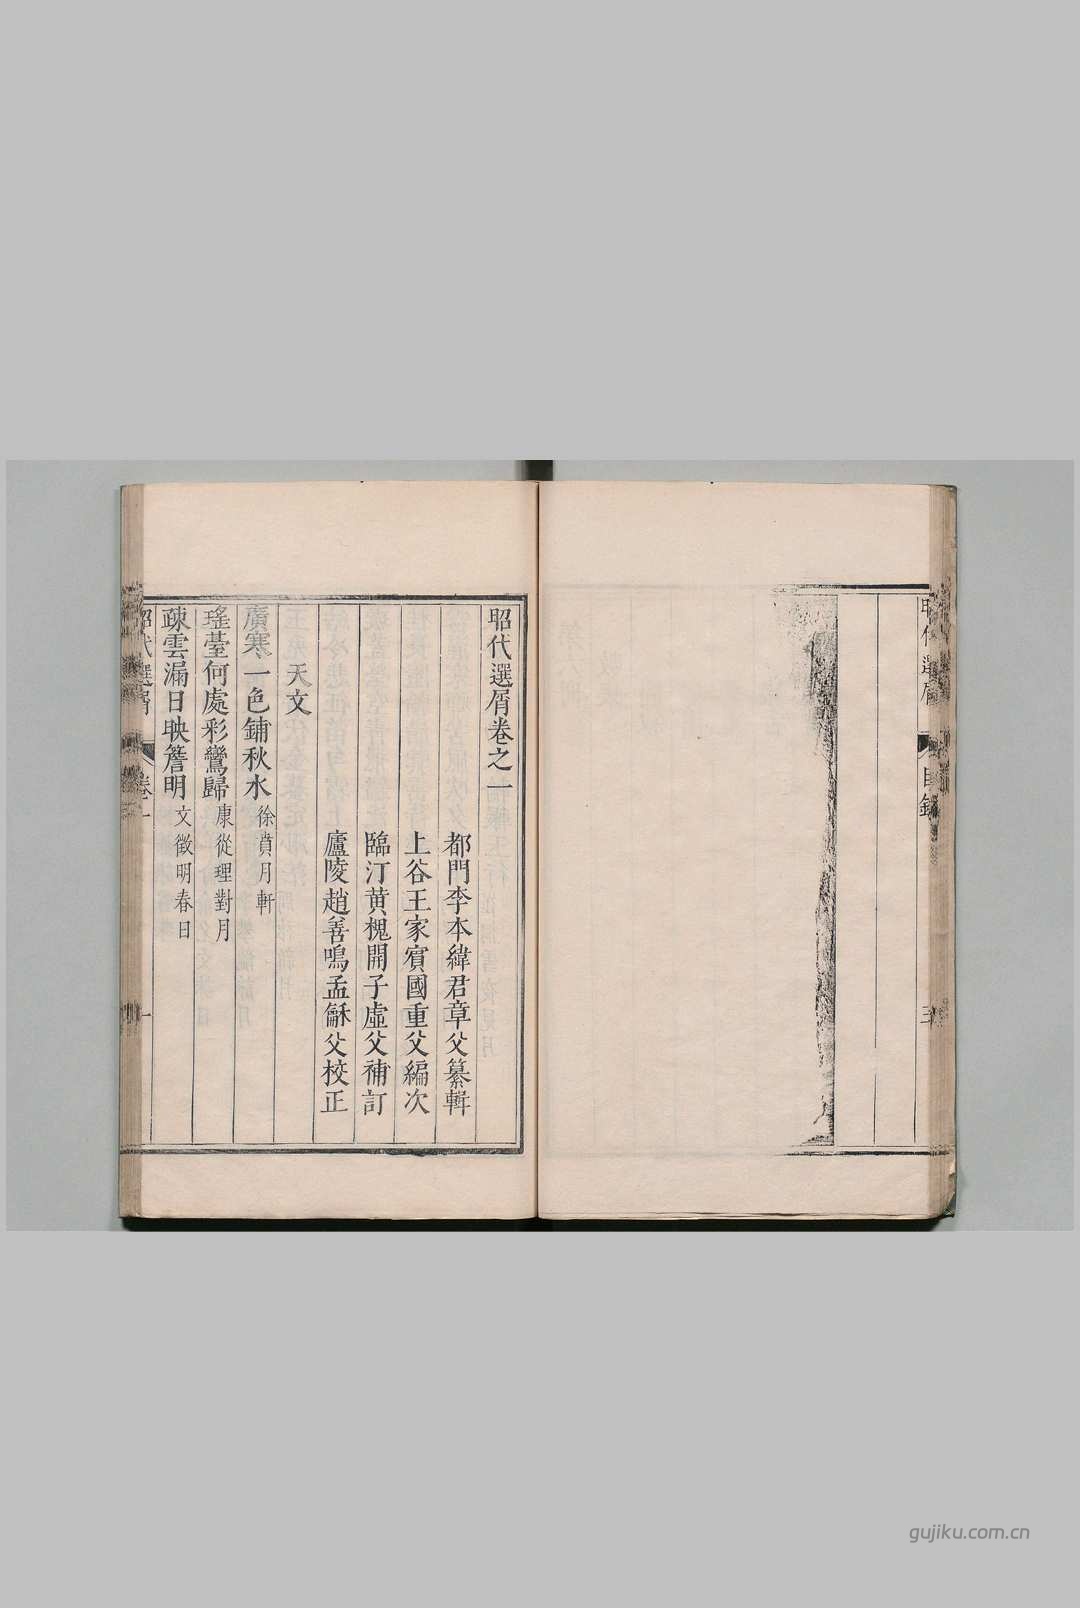 昭代選屑
目錄
三
昭代選屑卷之一
都門李本緯君章父纂輯
上谷王家賓國重父編次
臨汀黄槐開子虛父補訂
廬陵趙善鳴孟龢父校正
天文
廣寒一色鋪秋水徐賁月軒
瑤臺何處彩鸞歸康從理對月
疎雲漏日映簷明文徵明春日
昭代選屑
卷一
一
gujiku.com.cn